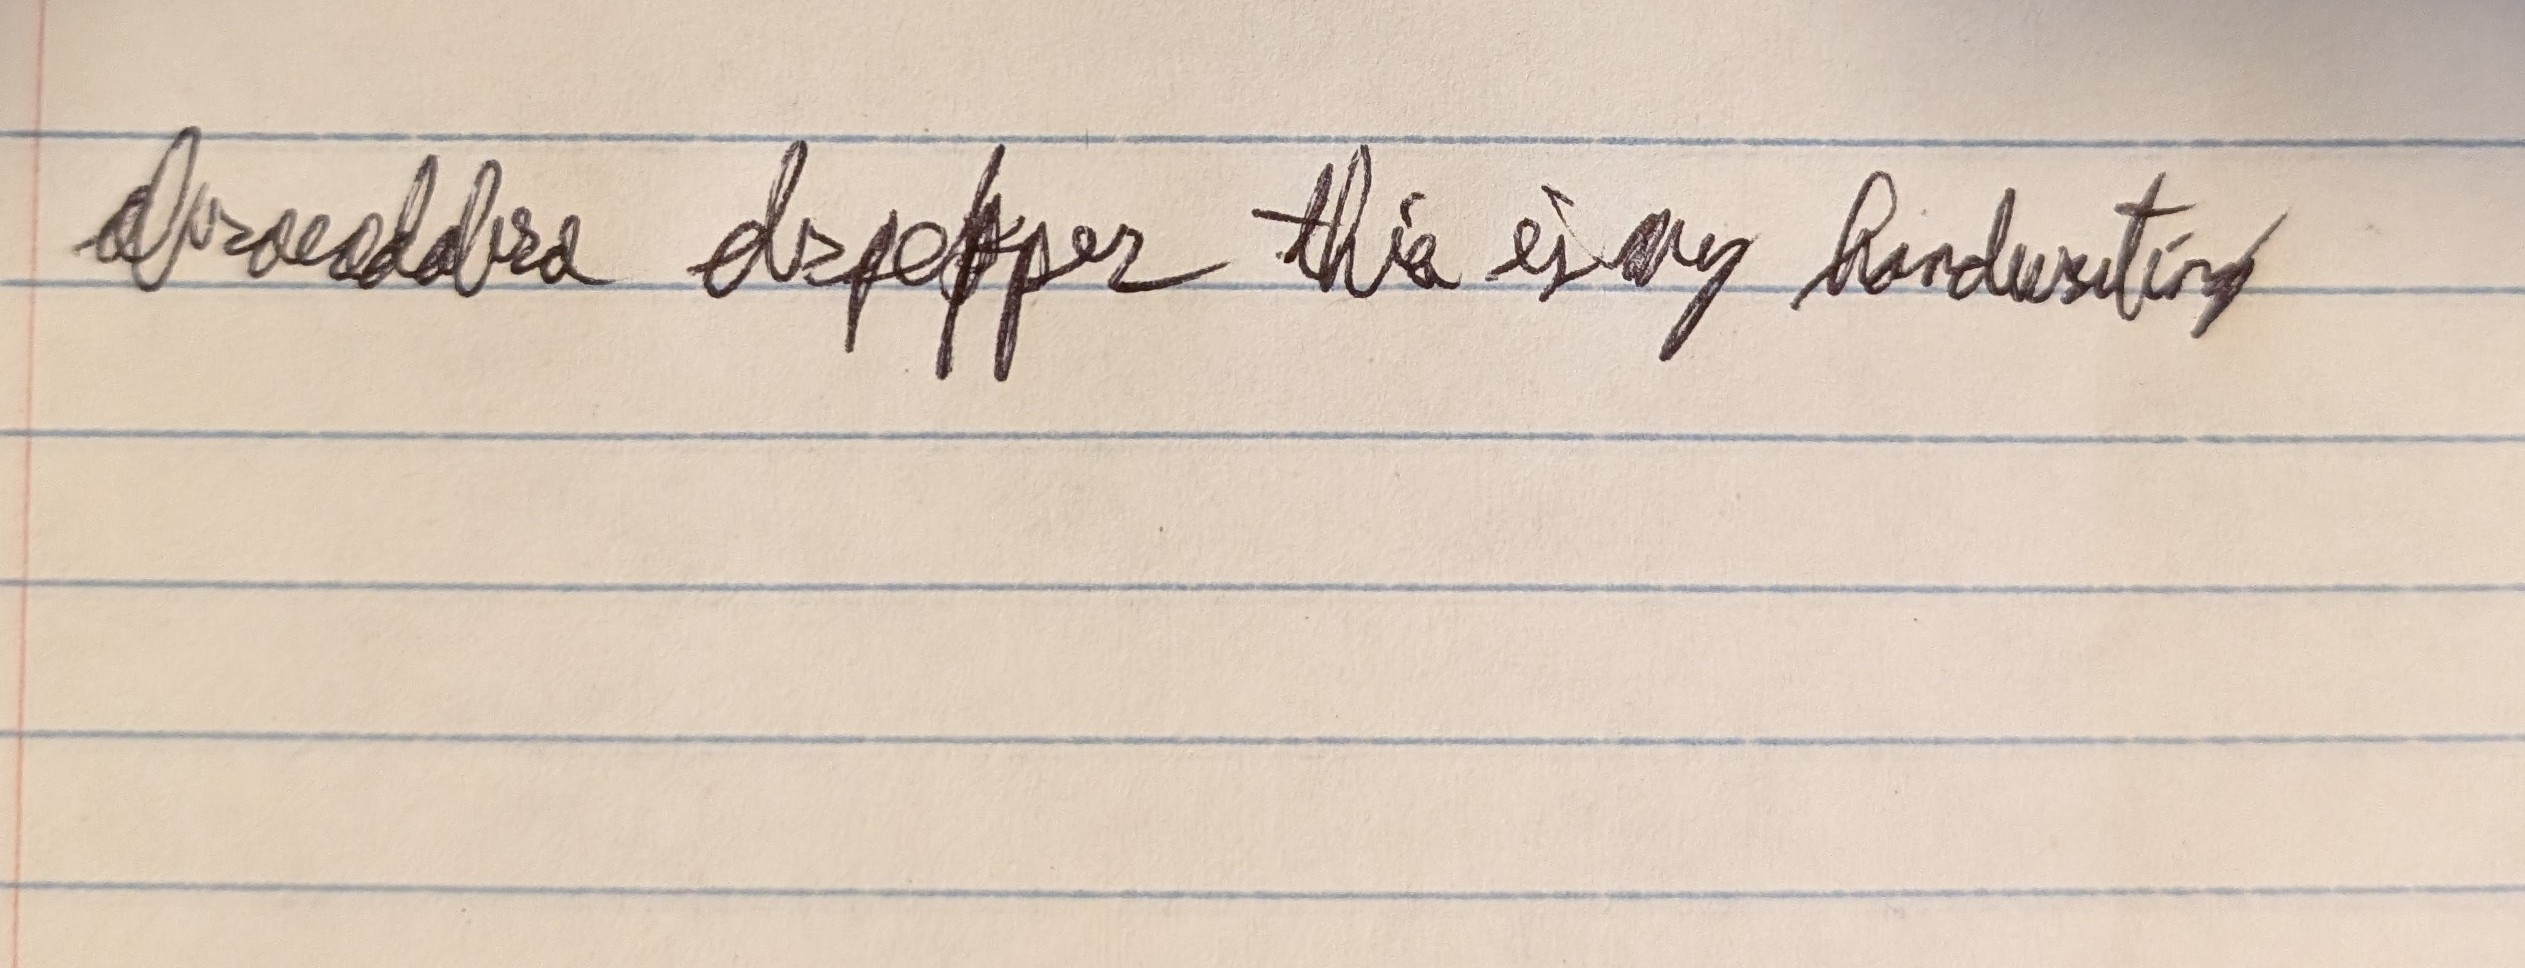 abracadabra drpepper this is my handwriting